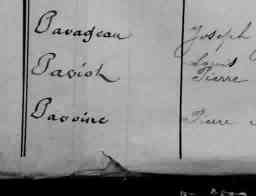 Pavageau Joseph
Louis
Paviot Pierre
Pavoine Pierre